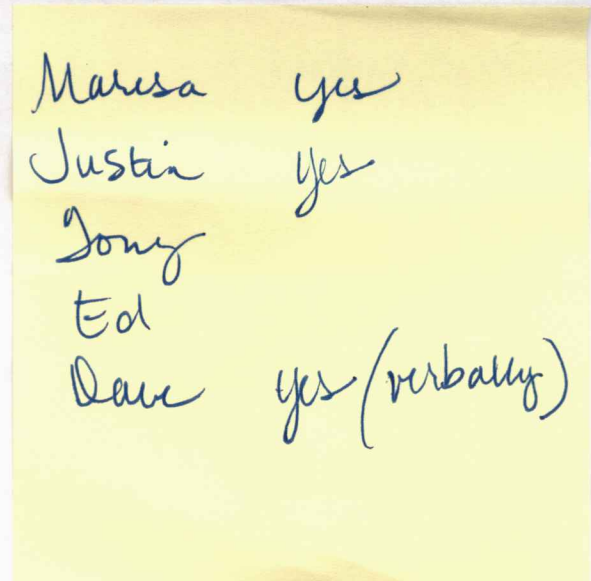 Marisa yes
Justin yes
Tony
Ed
Dave yes (verbally)